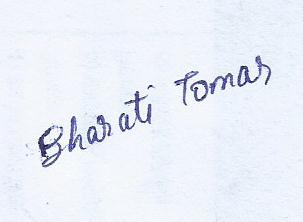 Bharati Tomar